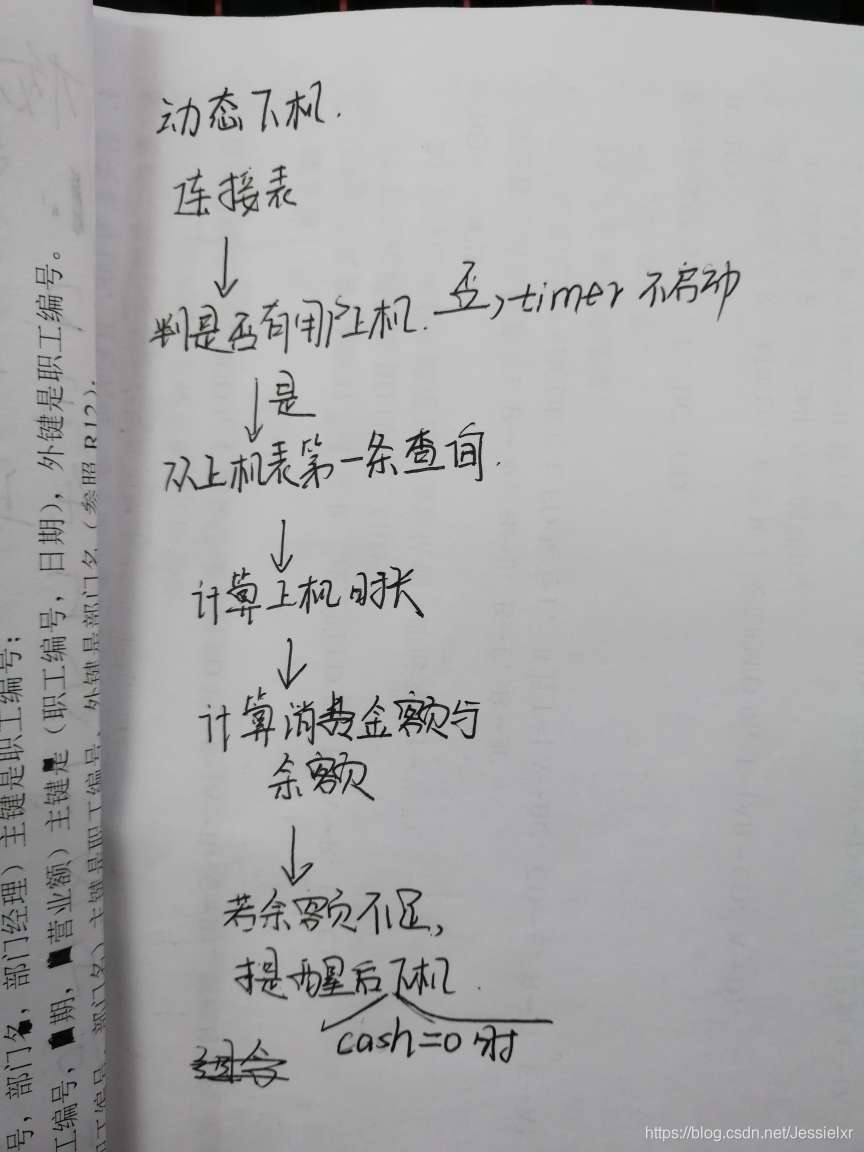 动态下机.
连接表
↓
判是否有用户上机. 否, timer 不启动
↓是
从上机表第一条查询.
↓
计算上机时长
↓
计算消费金额与
余额
↓
若余额不足,
提醒后下机.
cash=0时
号, 部门名, 部门经理) 主键是职工编号;
工编号, 期, 营业额) 主键是 (职工编号, 日期), 外键是职工编号。
职工编号, 部门名) 主键是职工编号, 外键是部门名 (参照 R12).
https://blog.csdn.net/Jessielxr